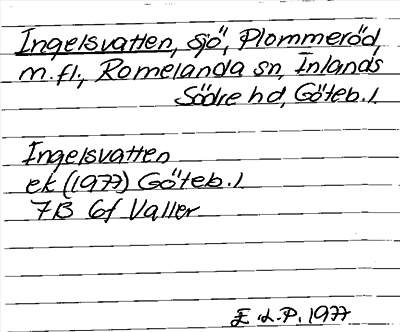 Ingelsvatten, sjö, Plommeröd,
m.fl., Romelanda sn, Inlands
Södre hd, Göteb.l.
Ingelsvatten
ek (1977) Göteb.l
7B 6f Valler
E.L.P. 1977